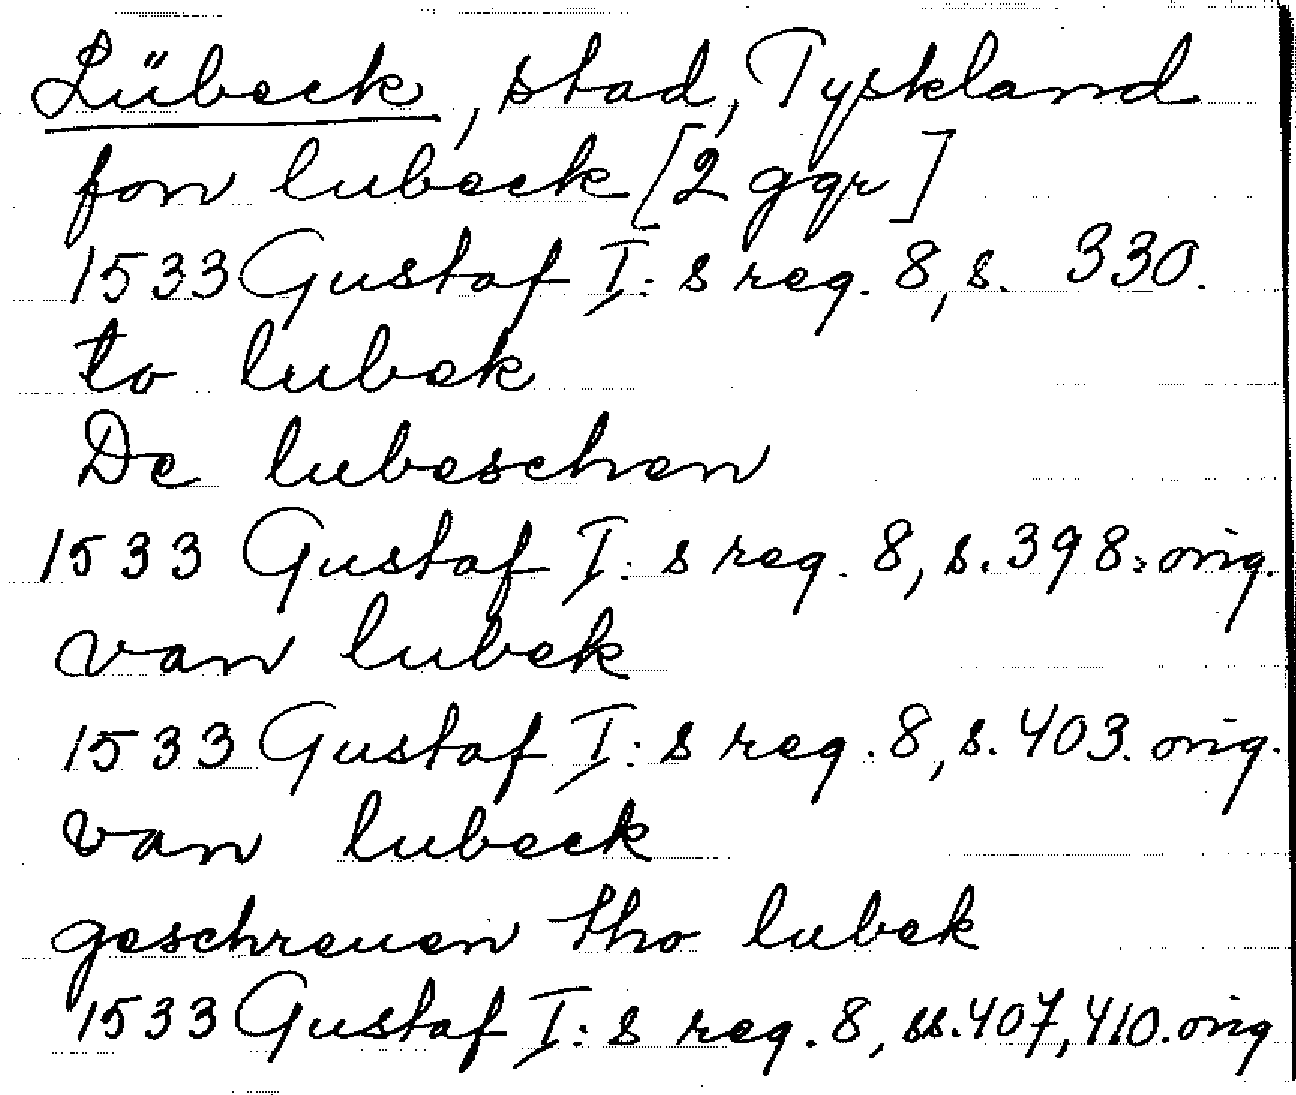 Lübeck, stad, Tyskland
fon lubeck [2 ggr]
1533 Gustaf I:s reg. 8, s. 330.
to lubek
De lubeschen
1533 Gustaf I:s reg. 8, s. 398. orig.
van lubek
1533 Gustaf I:s reg. 8, s. 403. orig.
van lubeck
geschreuen tho lubek
1533 Gustaf I:s reg. 8, ss. 407, 410. orig